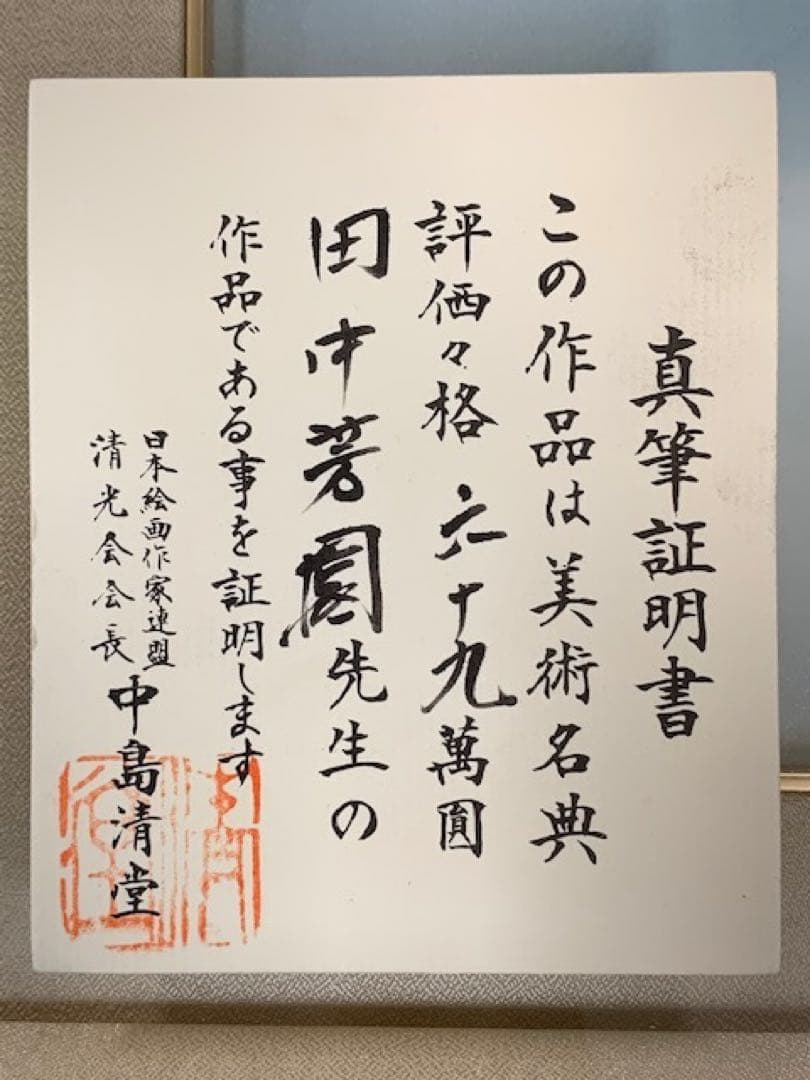 真筆証明書
この作品は美術名典
評価々格 六十九萬圓
田中芳園先生の
作品である事を証明します
日本絵画作家連盟
清光会会長 中島清堂